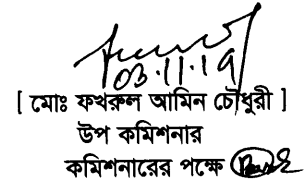 03.11.19
[ মোঃ ফখরুল আমিন চৌধুরী ]
উপ কমিশনার
কমিশনারের পক্ষে